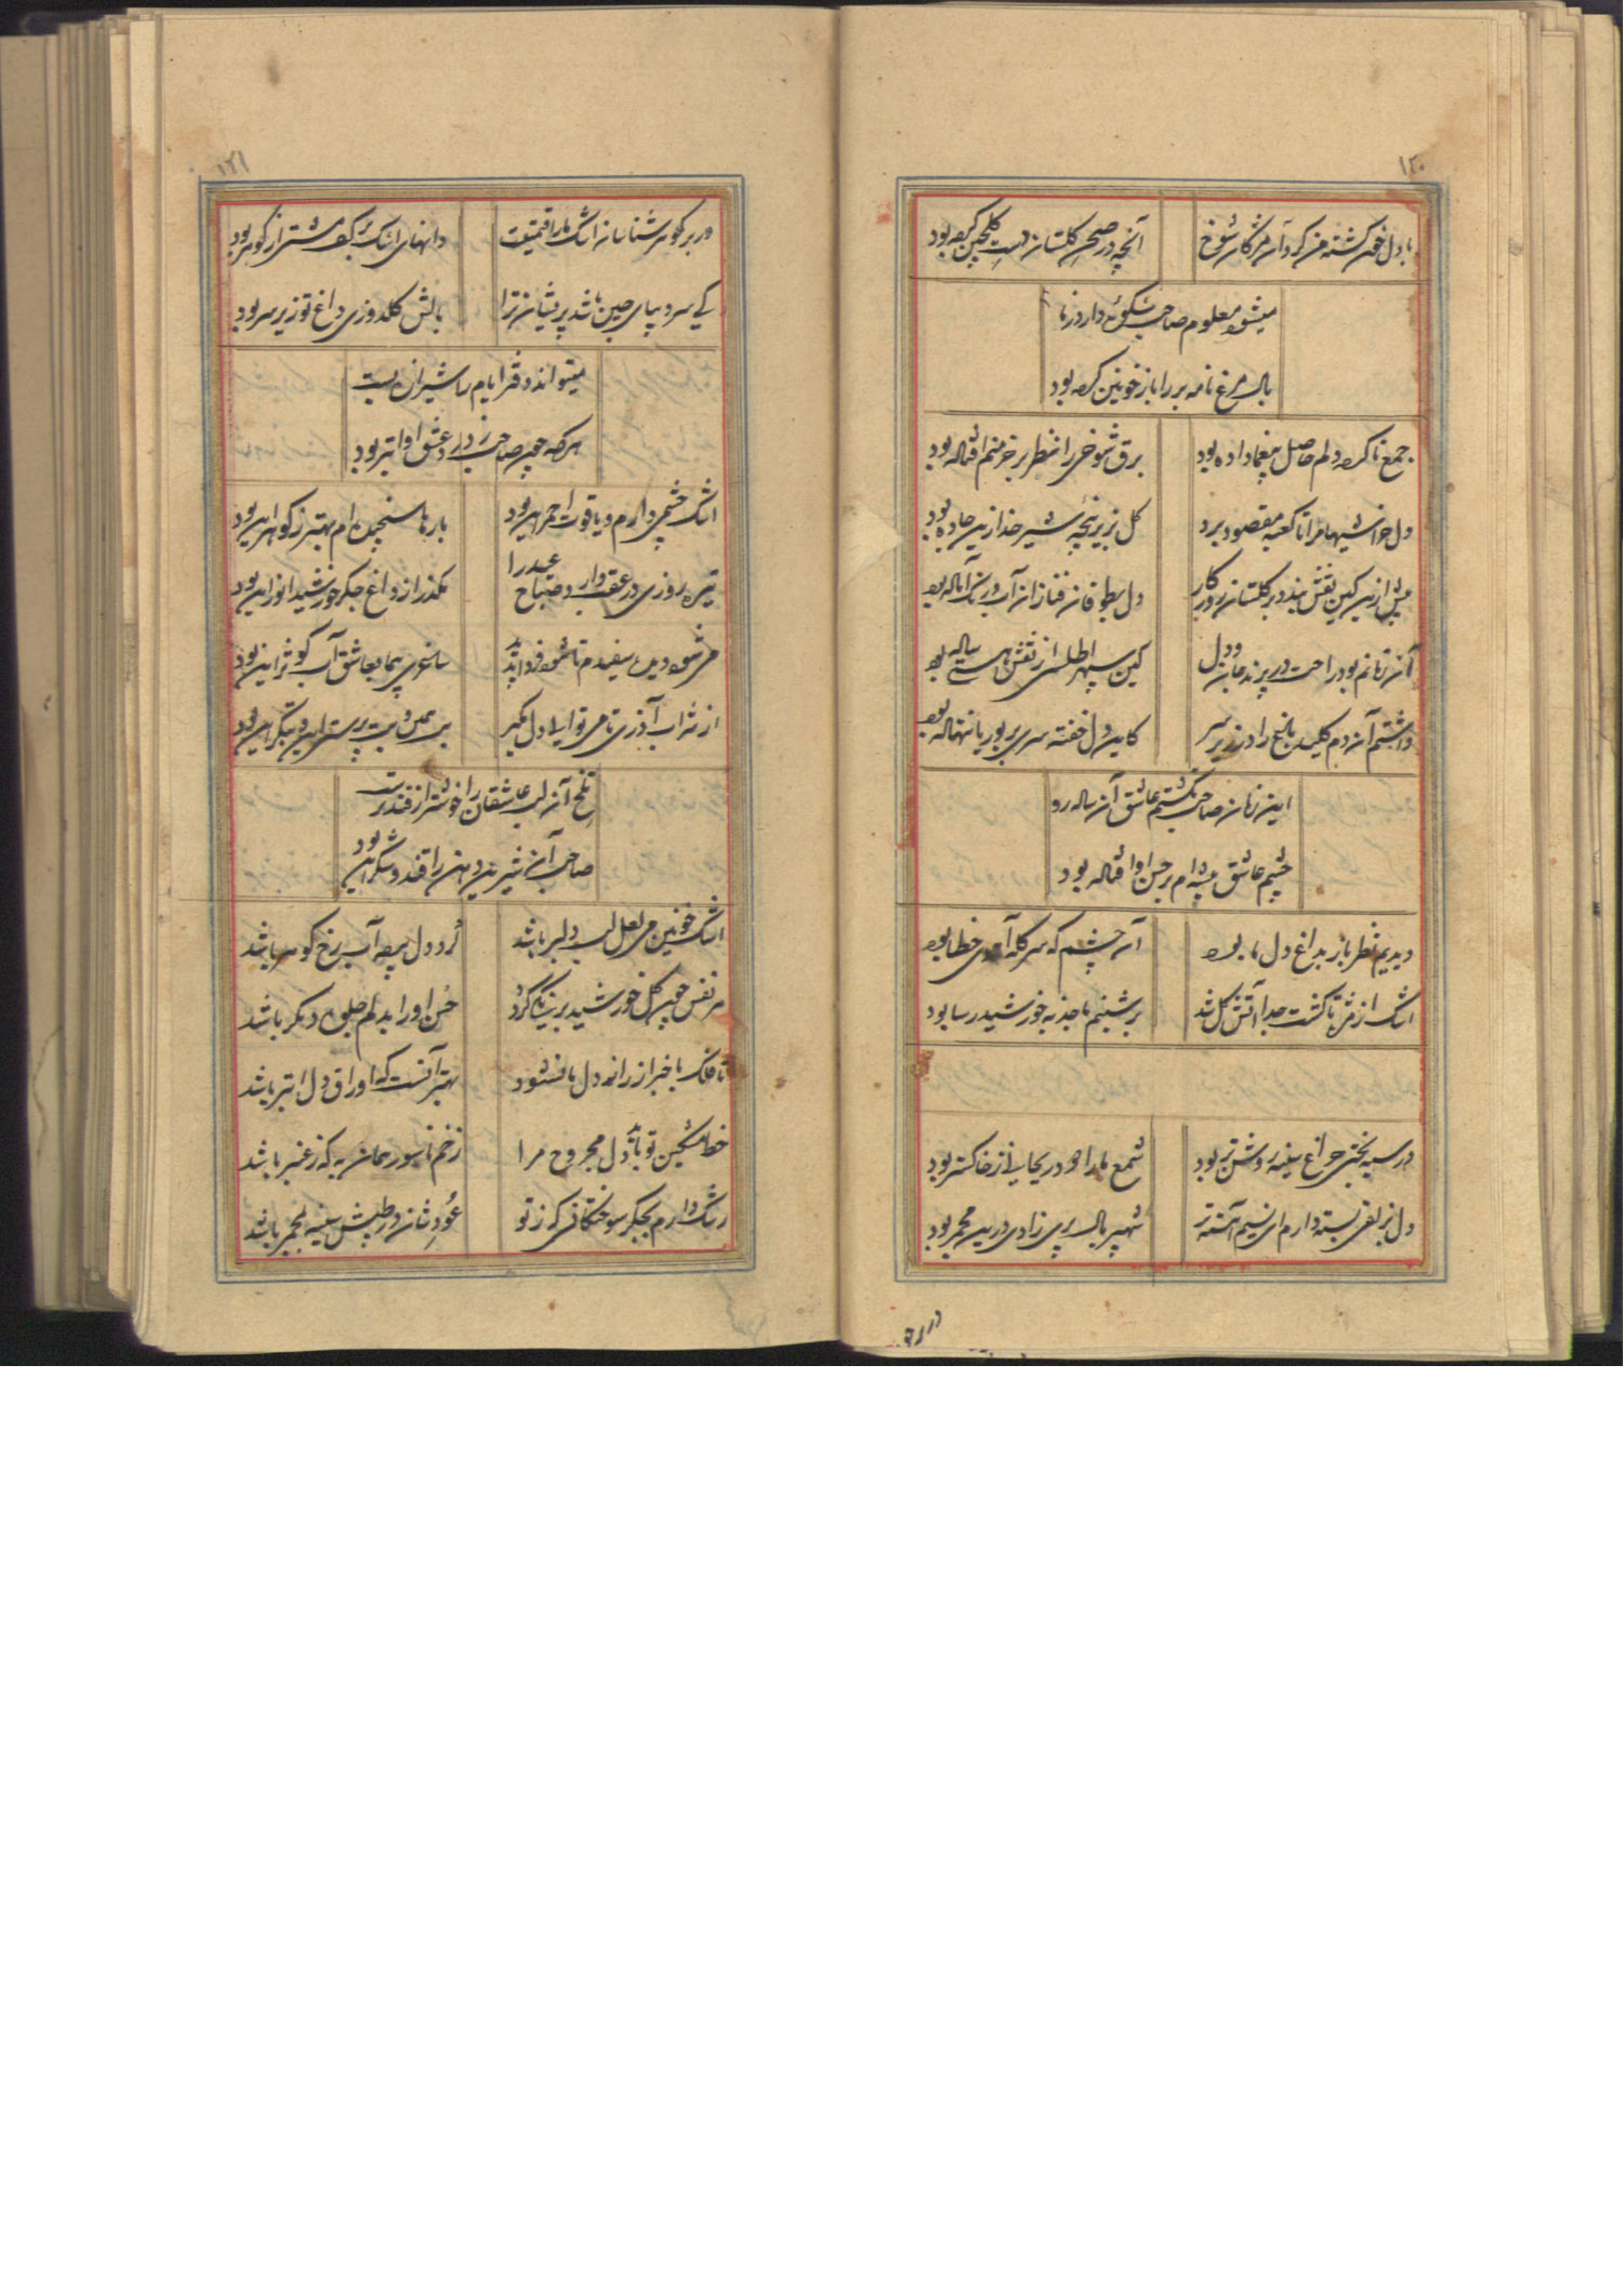 ۱۲۰
با دل خون گشته من کرد آن مژگان شوخ
آنچه در صحن گلستان دست گلچین کرده بود
میشود معلوم صاحب شکوهٔ دارد ز ما
بال مرغ نامه بر را باز خونین کرده بود
جمع نا کرده دلم حاصل بیغما داده بود
برق شوخی را نظر بر خرمنم افتاده بود
دل خراشیها مرا تا کعبه مقصود برد
گل بزیر پنجه شیر خدا زین جاده بود
پیش ازین کین نقش بندد بر گلستان روزگار
دل بطوفان فنا زان آب و رنگ آماده بود
آن زمانم بود راحت در پرند جان و دل
کین سپهر اطلس از نقش هستی ساده بود
داشتم آن دم کلید باغ را در زیر سر
کاین دل خفته سری بر بوریا ننهاده بود
این زمان صاحب نگشتم عاشق آن ساده رو
چشم عاشق پیشه ام بر حسن او افتاده بود
دیدیم نظر باز بداغ دل ما بود
آن چشم که سرکله آهوی خطا بود
اشک از مژه تا گشت جدا آتش گل شد
بر شبنم ما جذبه خورشید رسا بود
در سیه بختی چراغ سینه روشن تر بود
شمع ما را هودر یکجایی از خاکستر بود
دل بزلفی بسته دارم ای نسیم آهسته تر
شهپر بال پری زادی درین مجمر بود
۱۲۱
در بر گوهر شناسان اشک ما را قیمتیست
دانهای اشک بر کف مشتی از گوهر بود
کی سر دیبای چین باشد پریشان ترا
بالش گلدوزی داغ تو زیر سر بود
میتواند دفتر ایام را شیرازه بست
هر که چون صاحب ز درد عشق او ابتر بود
اشک چشمی دارم و یاقوت احمر این بود
بارها سنجیده ام بهتر ز گوهر این بود
تیره روزی در عقب دارد صباح عید را
بگذر از داغ جگر خورشید انور این بود
مژده دیدن سفیدم تا شود فردا بدید
ساغری پیما بعاشق آب کوثر این بود
از شراب آذری تا می توا ایدل مگیر
بر همن و بت پرست این و بتگر این بود
تلخ آن لب عاشقان را خوشتر از قندترست
صاحب آن شیرین دهن را قند و شکر این بود
اشک خونین می لعل لب دلبر باشد
گرد دل پرده آب رخ گوهر باشد
هر نفس چون گل خورشید برنگی گردد
حسن او را بدلم جلوه دیگر باشد
تا فلک با خبر از راز دل ما نشود
بهتر آنست که اوراق دل ابتر باشد
خط مشکین تو باید دل مجروح مرا
زخم ناسور همان به که ز عنبر باشد
رشک دارم بجگر سوختگانی که ز تو
عود شان در طپش سینه مجمر باشد